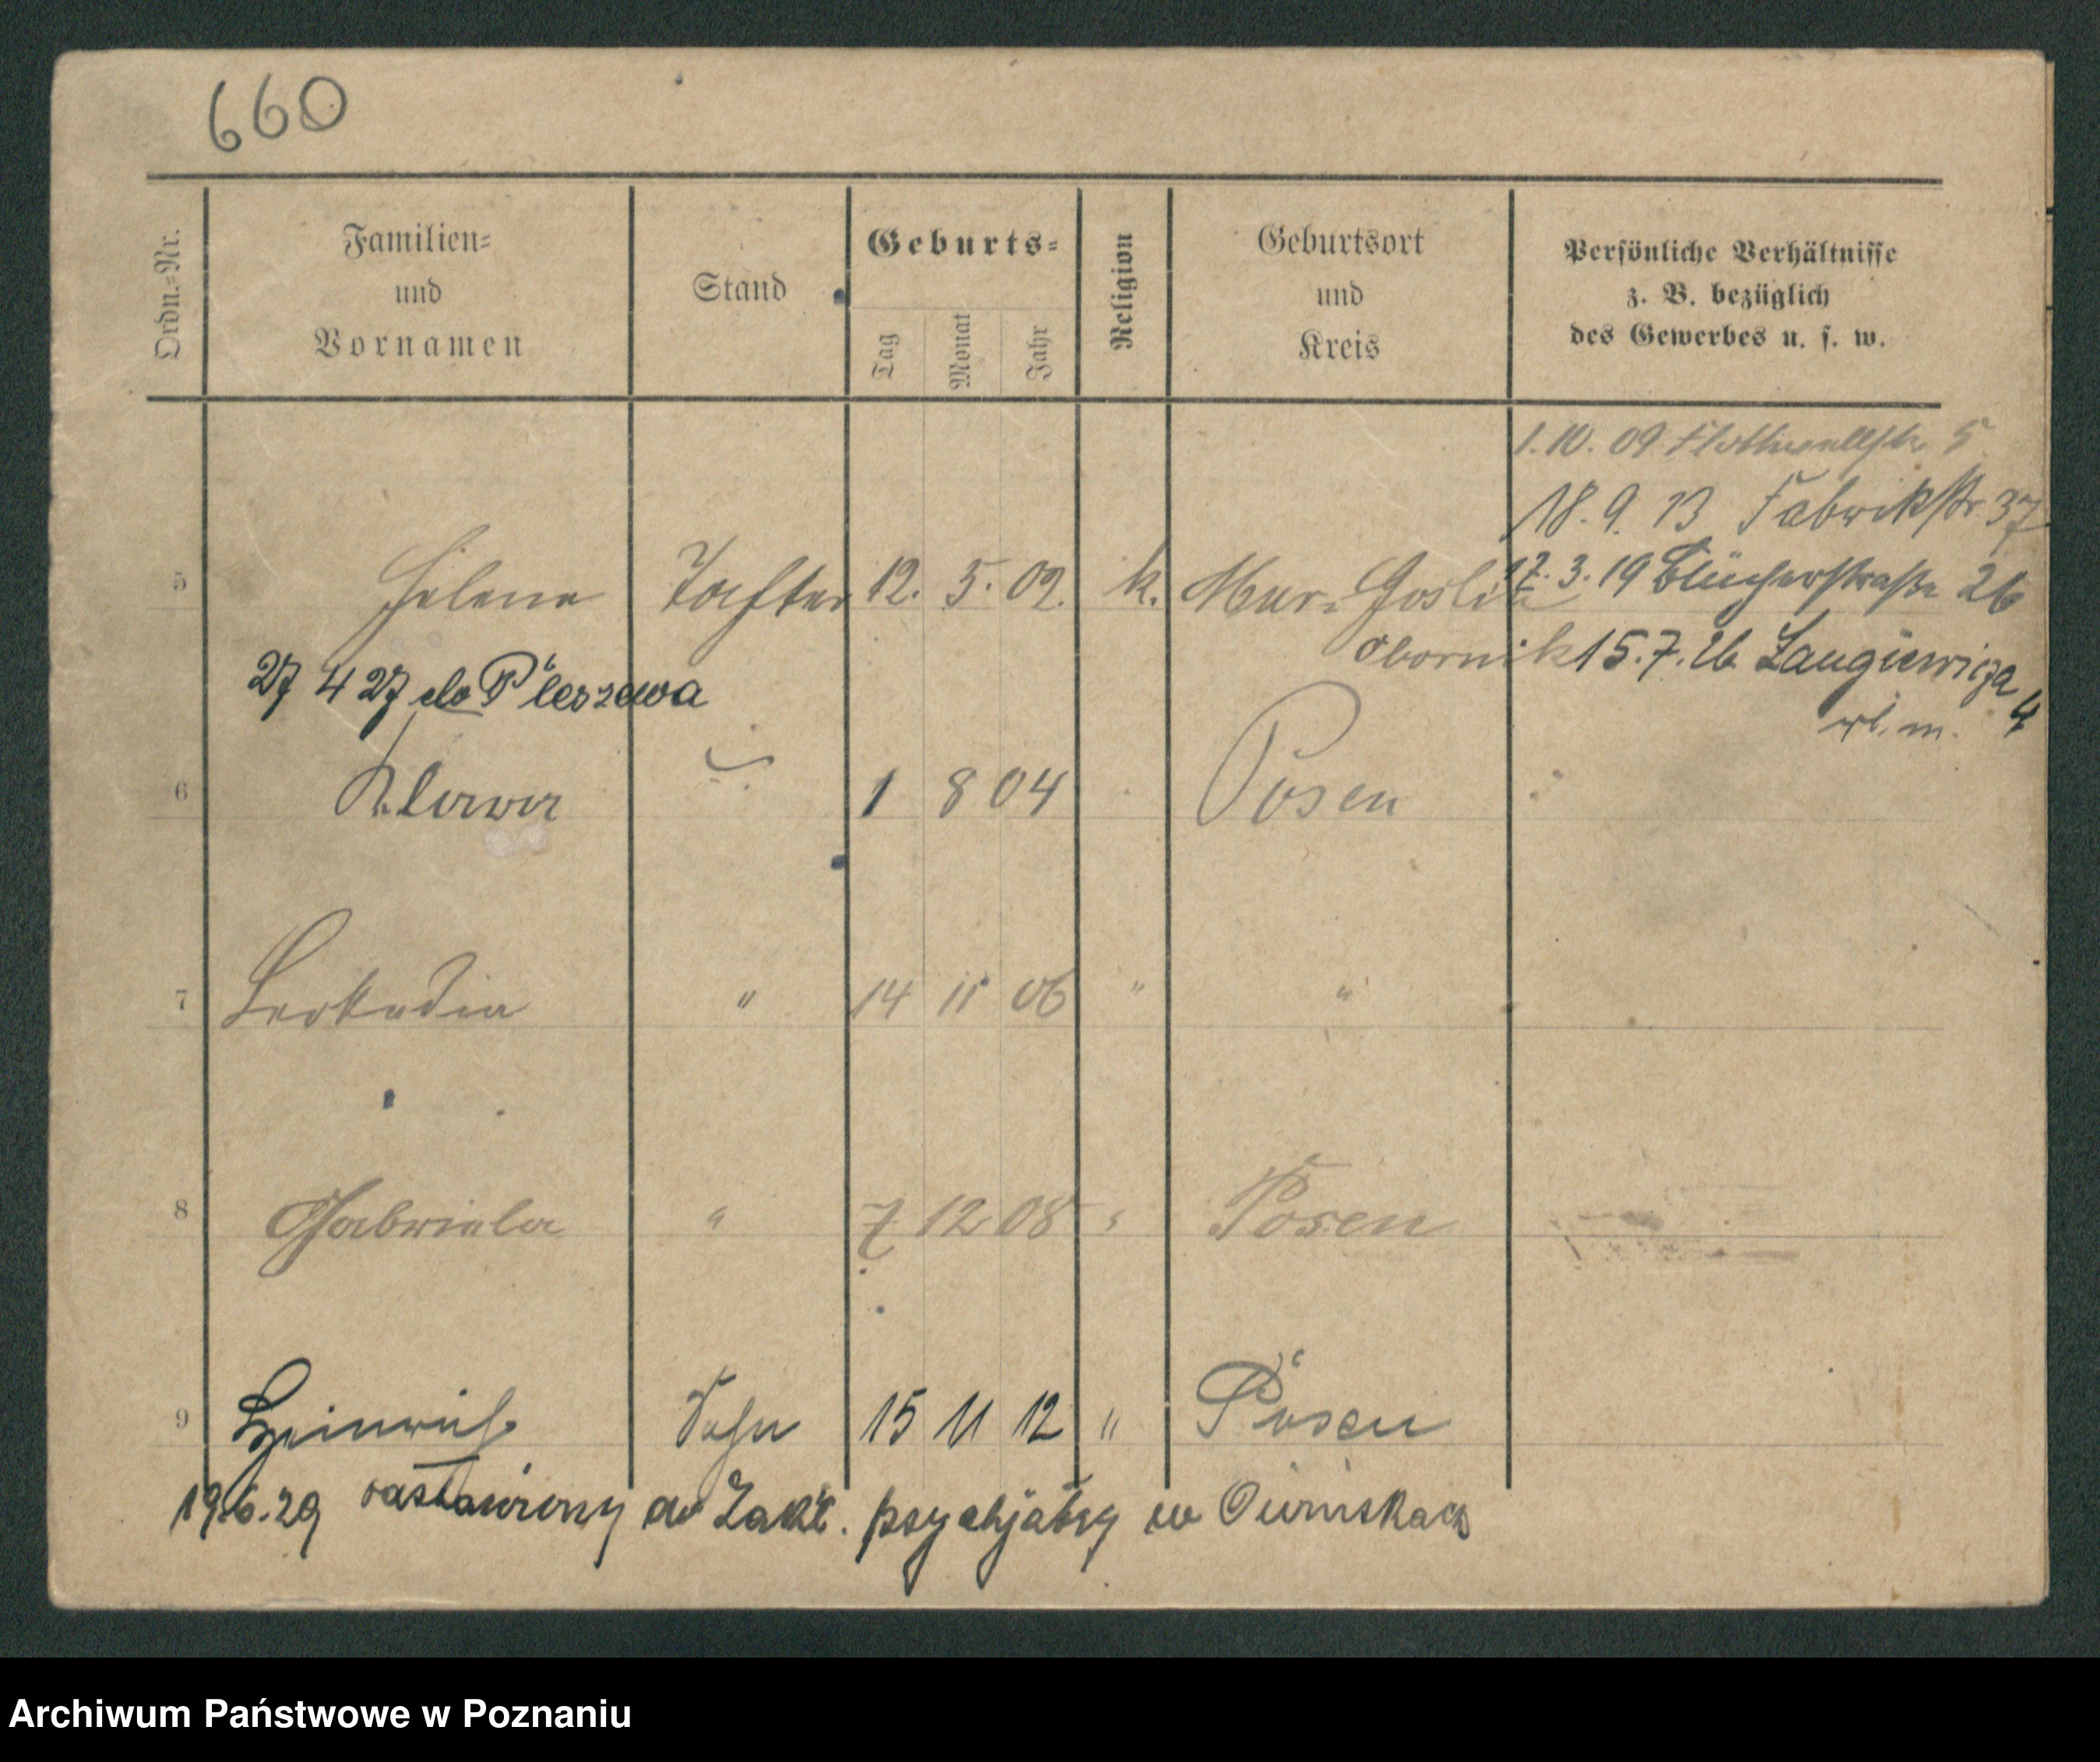 660
Ordn.=Nr.
Familien=
und
Vornamen
Stand
Geburts=
Tag
Monat
Jahr
Religion
Geburtsort
und
Kreis
Persönliche Verhältnisse
z. B. bezüglich
des Gewerbes u. s. w.
1.10.09 Flottwellstr 5
18.9.13 Fabrikstr 37
5 Helene Tochter 12. 5. 02. k. Mur. Goslin
17.3.19 Blücherstraße 26
Obornik
15.7.26 Langiewicza 4
27 4 27 do Pleszewa
6 Klara 1 8 04 Posen
7 Leokadia " 14 11 06 " "
8 Gabriela " 7 12 08 " Posen
9 Heinrich Sohn 15 11 12 " Posen
19.6.29 do Zakł. psychjatry w
Archiwum Państwowe w Poznaniu